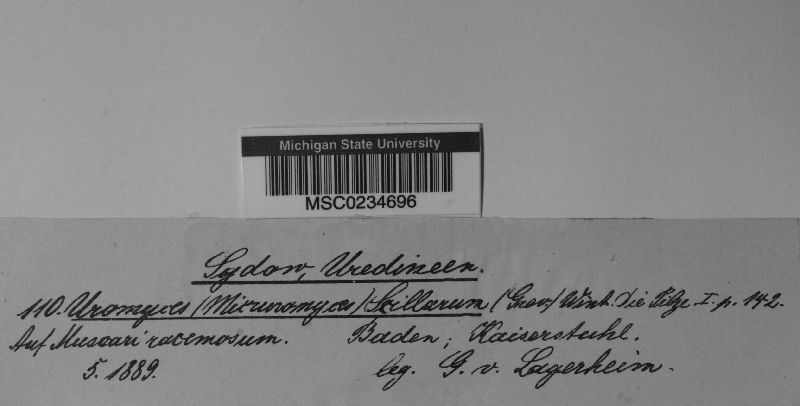 Michigan State University
MSC0234696
Sydow, Uredineen.
110. Uromyces (Micruromyces) Scillarum (Grev) Wint. Die Pilze I. p. 142.
Auf Muscari racemosum. Baden; Kaiserstuhl.
5. 1889. leg. G. v. Lagerheim.